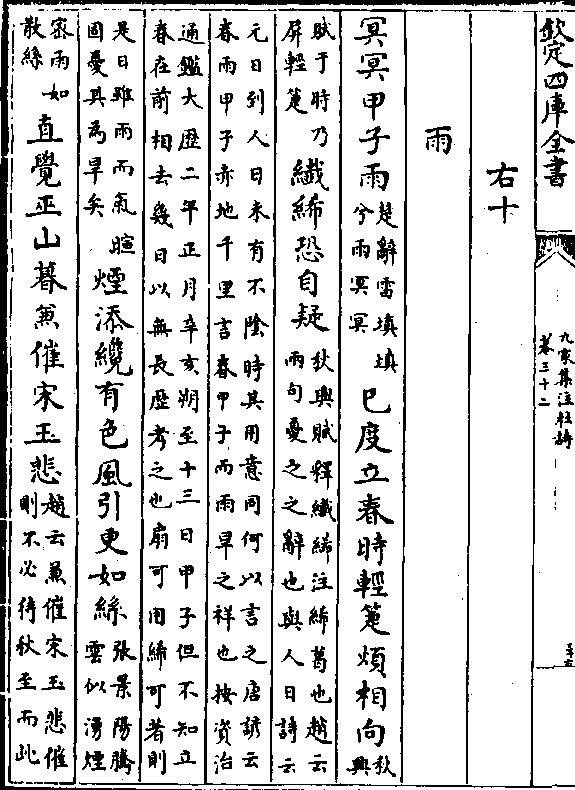 欽定四庫全書
九家集注杜詩
卷三十二
右十
雨
冥冥甲子雨楚辭雷填填兮雨冥冥已度立春時輕箑煩相向秋興
賦于時乃屏輕箑纎絺恐自疑秋興賦釋纎絺注絺葛也趙云兩句憂之之辭也與人日詩云
元日到人日未有不陰時其用意同何以言之唐諺云春雨甲子赤地千里言春甲子而雨旱之祥也按資治
通鑑大歴二年正月辛亥朔至十三日甲子但不知立春在前相去幾日以無長歴考之也扇可用絺可著則
是日雖雨而氣暄固憂其為旱矣煙添纜有色風引更如絲張景陽騰雲似湧煙
宻雨如散絲直覺巫山暮兼催宋玉悲趙云兼催宋玉悲催則不必待秋至而此